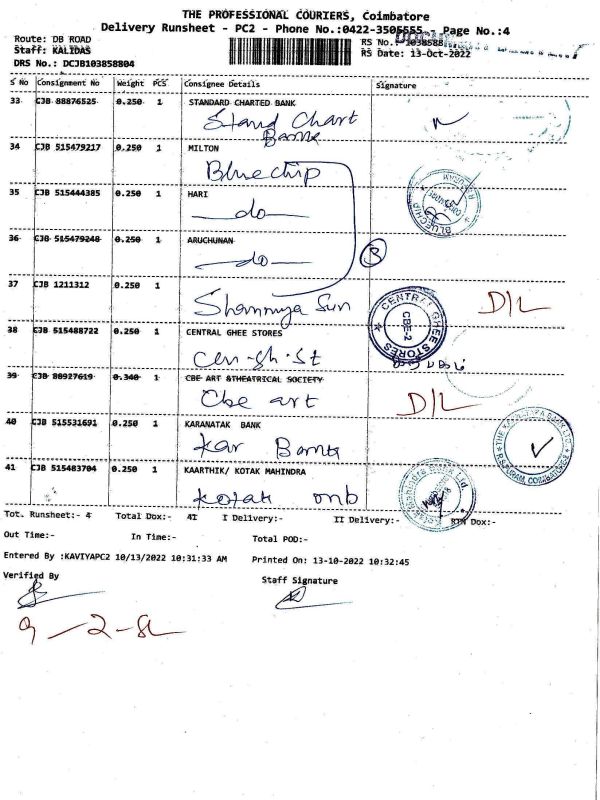 THE PROFESSIONAL COURIERS, Coimbatore
Delivery Runsheet - PC2 - Phone No.:0422-3505555- Page No.:4
Route: DB ROAD
Staff: KALIDAS
RS No.: 1038588
DRS No.: DCJB103858804
RS Date: 13-Oct-2022
S No Consignment No Weight PCS Consignee Details Signature
33 CJB 88876525 0.250 1 STANDARD CHARTED BANK
Stand Chart
Bank
34 CJB 515479217 0.250 1 MILTON
Bluechip
35 CJB 515444385 0.250 1 HARI
—do—
BLUECHIP
36 CJB 515479248 0.250 1 ARUCHUNAN
—do—
3
37 CJB 1211312 0.250 1
Sun
D/L
CENTRAL GHEE STORES
CBE-2
38 CJB 515488722 0.250 1 CENTRAL GHEE STORES
Cen-gh.St
39 CJB 88927619 0.340 1 CBE ART &THEATRICAL SOCIETY
Cbe art
D/L
40 CJB 515531691 0.250 1 KARANATAK BANK
Kar Bank
41 CJB 515483704 0.250 1 KAARTHIK/ KOTAK MAHINDRA
Kotak mnb
Tot. Runsheet:- 4 Total Dox:- 41 I Delivery:- II Delivery:- RTN Dox:-
Out Time:- In Time:- Total POD:-
Entered By :KAVIYAPC2 10/13/2022 10:31:33 AM Printed On: 13-10-2022 10:32:45
Verified By
Staff Signature
9-2-